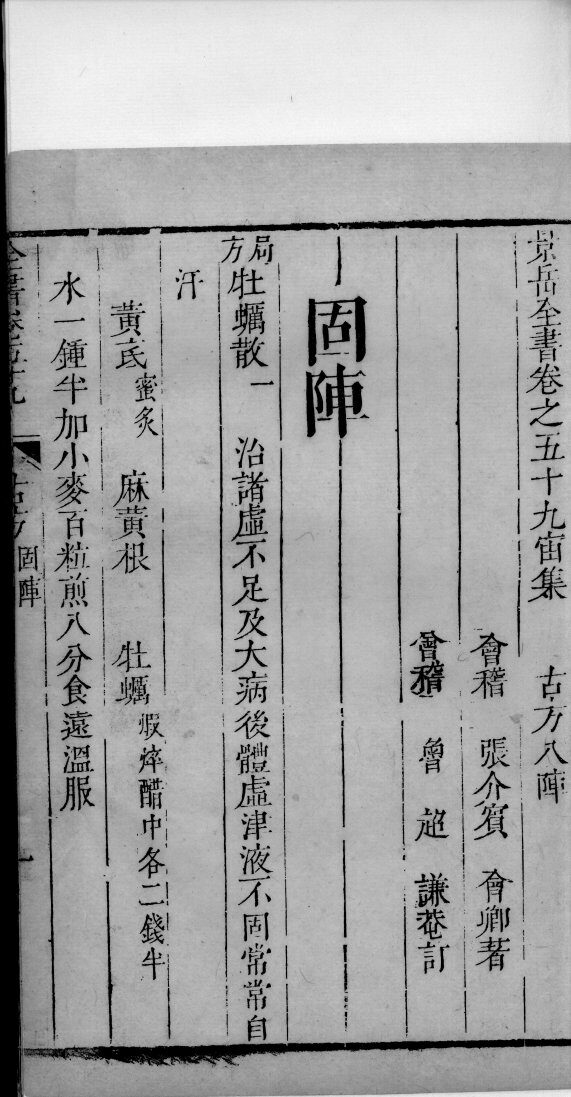 景岳全書卷之五十九宙集 古方八陣
會稽 張介賓 會卿著
會稽 魯 超 謙菴訂
固陣
局方牡蠣散一 治諸虛不足及大病後體虛津液不固常常自
汗
黃芪蜜炙 麻黃根 牡蠣煅焠醋中各二錢半
水一鍾半加小麥百粒煎八分食遠溫服
全書卷五十九 古方 固陣 一